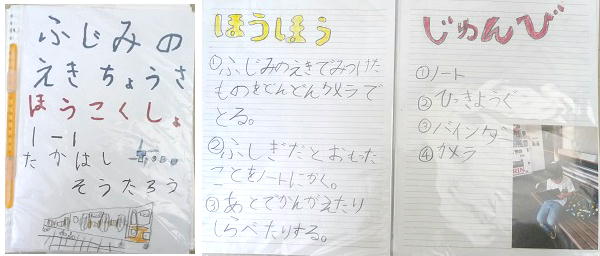 ふじみの
えきちょうさ
ほうこくしょ
1-1
たかはし
そうたろう
ほうほう
①ふじみのえきでみつけた
ものをどんどんカメラで
とる。
②ふしぎだとおもった
ことをノートにかく。
③あとでかんがえたり
しらべたりする。
じゅんび
①ノート
②ひっきようぐ
③バインダー
④カメラ